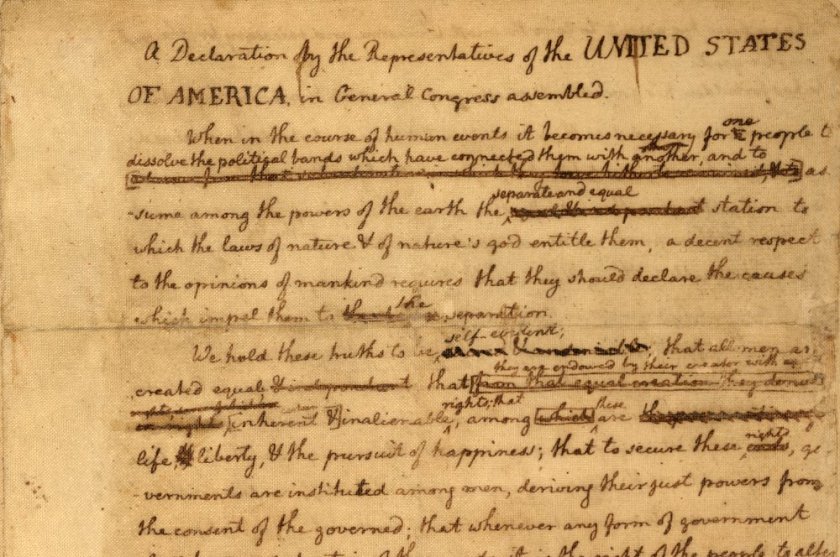 A Declaration by the Representatives of the UNITED STATES
OF AMERICA, in General Congress assembled.
When in the course of human events it becomes necessary for one people to
dissolve the political bands which have connected them with another, and to
as
separate and equal
-sume among the powers of the earth the station to
which the laws of nature & of nature's god entitle them, a decent respect
to the opinions of mankind requires that they should declare the causes
which impel them to the separation.
self-evident;
We hold these truths to be & undeniable, that all men ar
they are endowed by their creator with
created equal & independant that from that equal creation they derive
rights, that these
in rights inherent & inalienable, among which are
rights
life & liberty, & the pursuit of happiness; that to secure these ends, go
-vernments are instituted among men, deriving their just powers from
the consent of the governed; that whenever any form of government
the people to